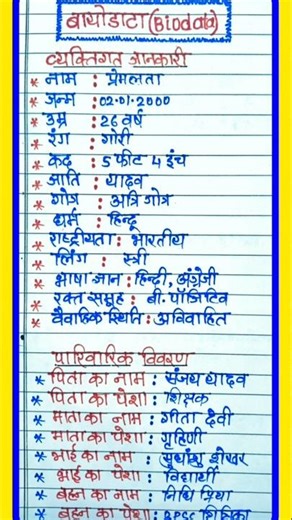 बायोडाटा (Biodata)
व्यक्तिगत जानकारी
* नाम : प्रेमलता
* जन्म : 02.01.2000
* उम्र : 26 वर्ष
* रंग : गोरी
* कद : 5 फीट 4 इंच
* जाति : यादव
* गोत्र : अत्रि गोत्र
* धर्म : हिन्दू
* राष्ट्रीयता : भारतीय
* लिंग : स्त्री
* भाषा ज्ञान : हिन्दी, अंग्रेजी
* रक्त समूह : बी. पॉजिटिव
* वैवाहिक स्थिति : अविवाहित
पारिवारिक विवरण
* पिता का नाम : संजय यादव
* पिता का पेशा : शिक्षक
* माता का नाम : गीता देवी
* माता का पेशा : गृहिणी
* भाई का नाम : सुधांशु शेखर
* भाई का पेशा : विद्यार्थी
* बहन का नाम : निधि प्रिया
* बहन का पेशा : BPSC शिक्षिका